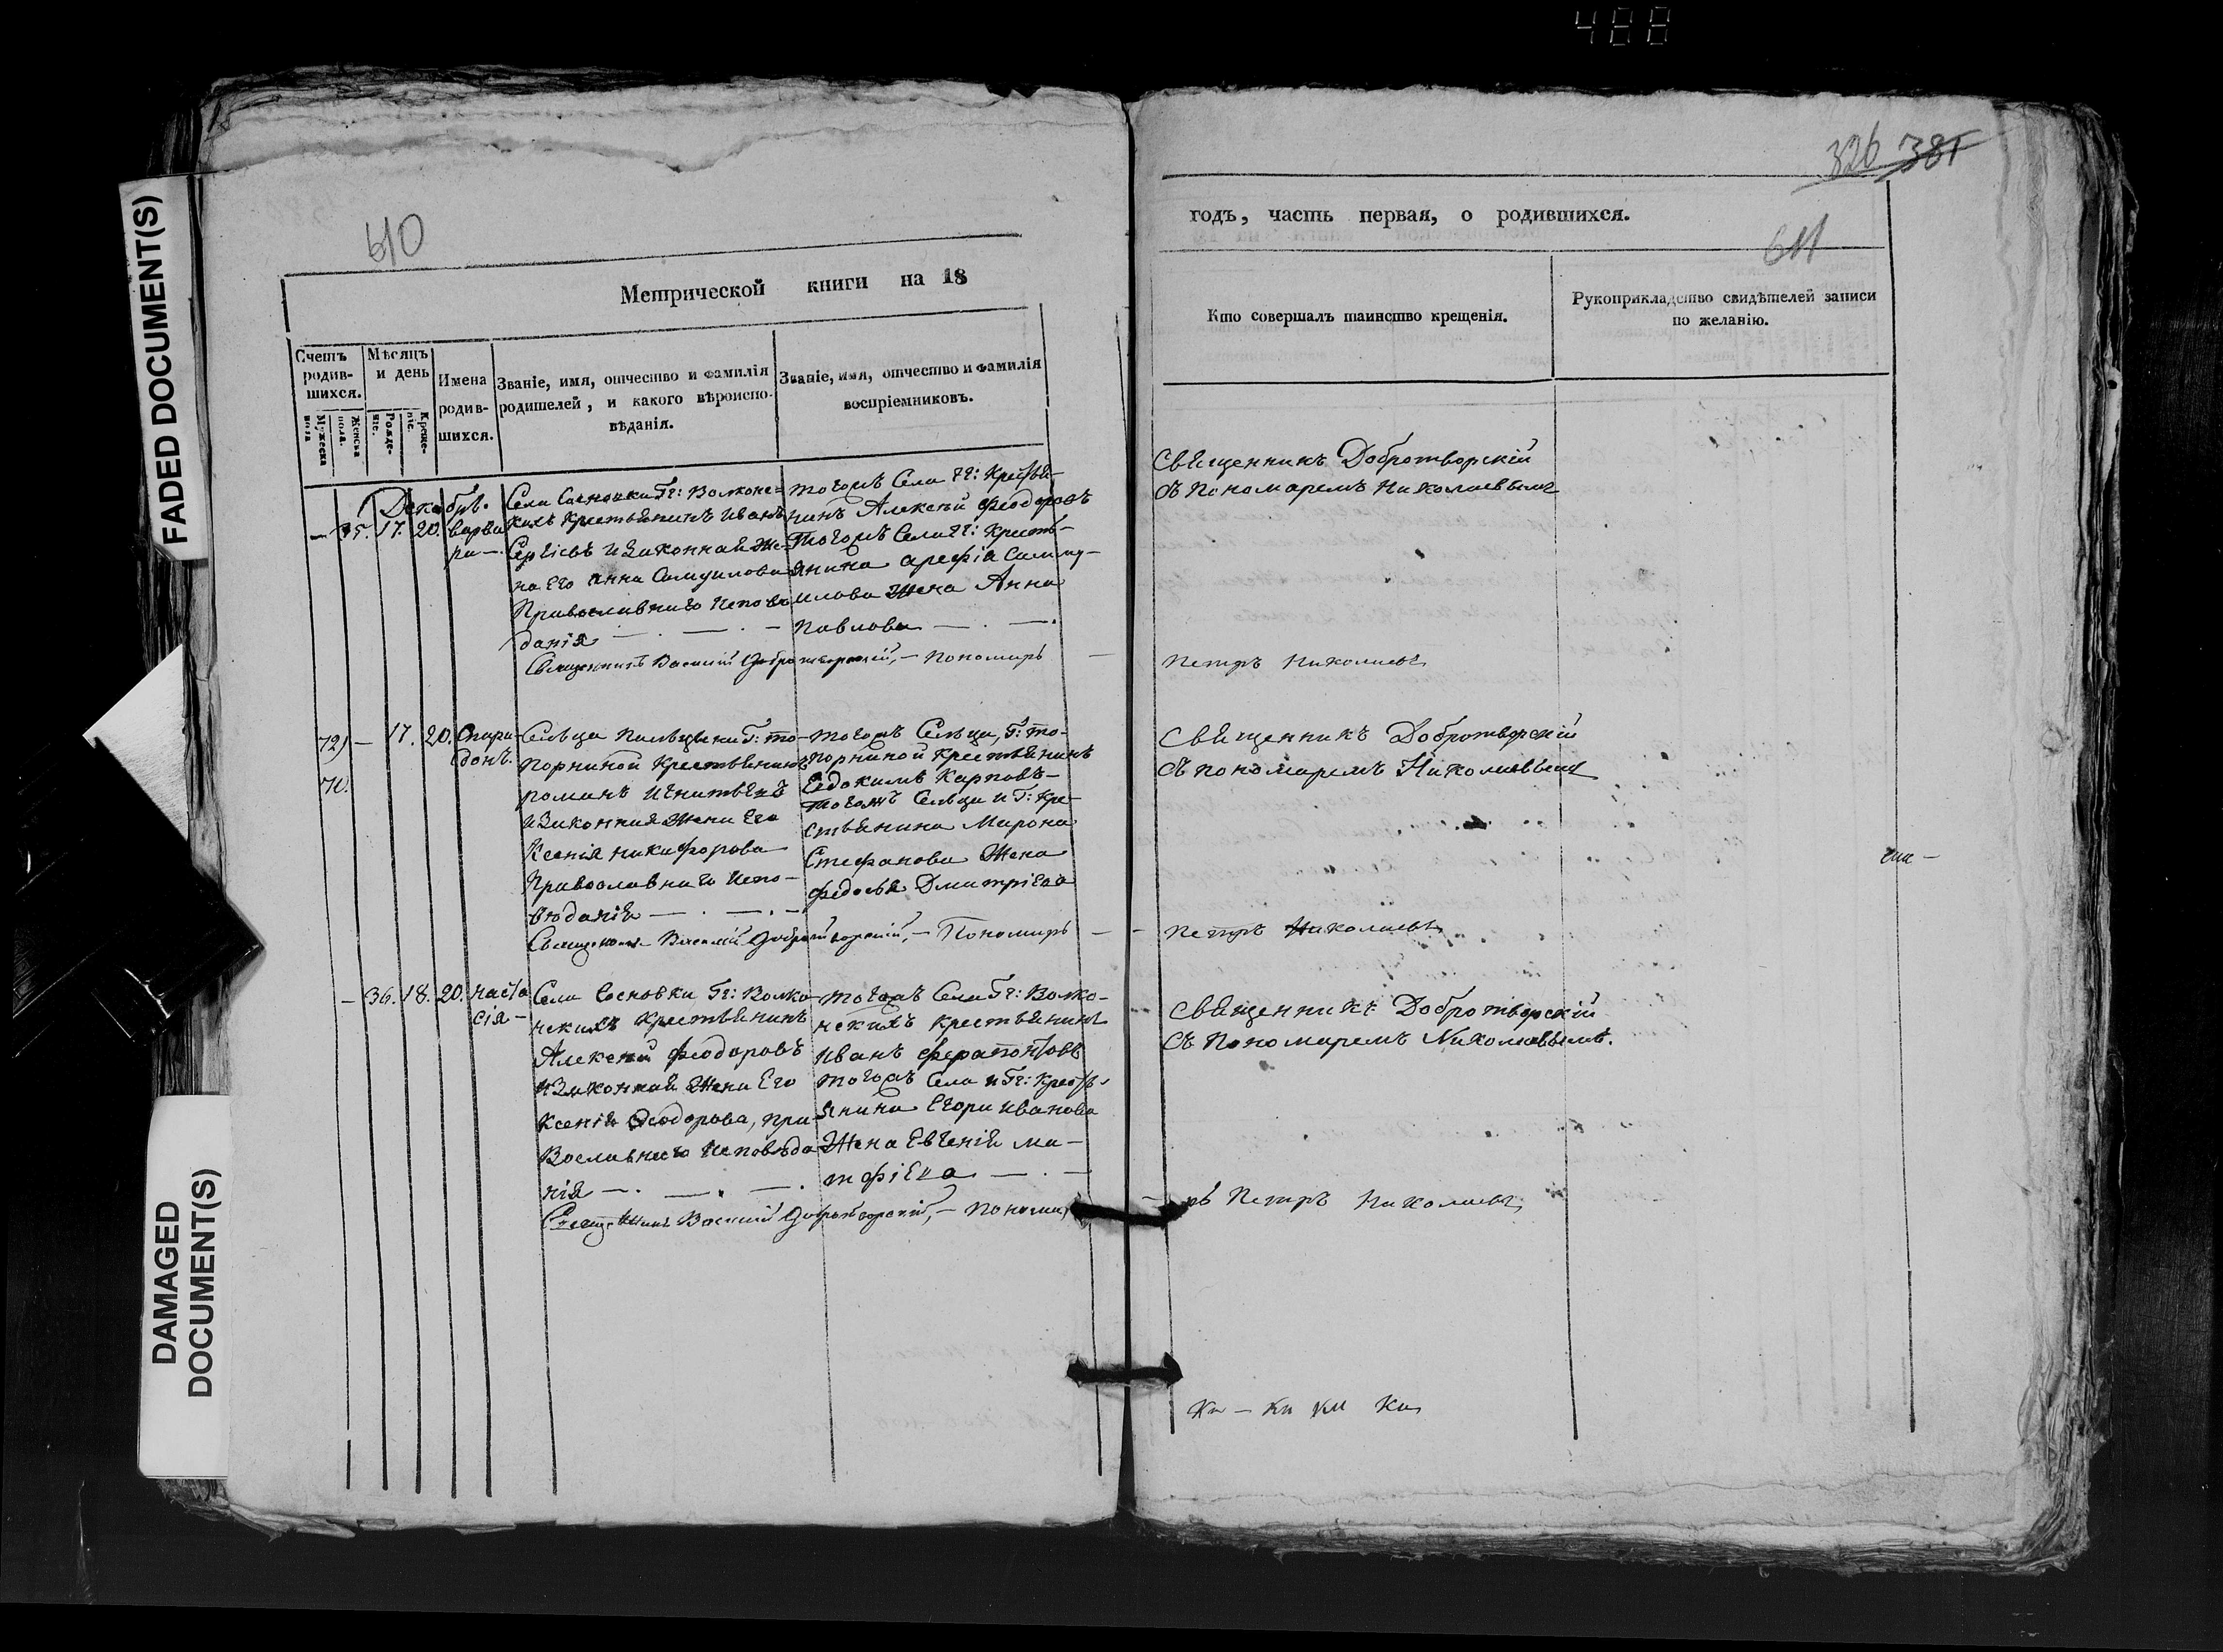 488
FADED DOCUMENT(S)
DAMAGED
DOCUMENT(S)
610
Метрической книги на 18
Счетъ
родив-
шихся.
Мужеска
пола
Женска
пола.
Мѣсяцъ
и день
Рожде-
ніе.
Креще-
ніе.
Имена
родив-
шихся.
Званіе, имя, отчество и фамилія
родителей, и какого вѣроиспо-
вѣданія.
Званіе, имя, отчество и фамилія
воспріемниковъ.
Декабрь.
— 35. 17. 20. Варва
ра —.
Села Сосновки Гг: Волконс=
кихъ Крестьянинъ Иванъ
Сергіевъ и Законная Же-
на Его Анна Самуилова
Православнаго Испове
данія — . — . —
тогожъ Села Гг: Крестья-
нинъ Алексѣй Феодоровъ
тогожъ Села Гг: Кресть-
янина Арефія Саму-
илова Жена Анна
Павлова — . — .
Священникъ Василій Добротворскій, — Пономарь
17. 20. Спири-
донъ.
Сельца Г: То-
порниной Крестьянинъ
Романъ Игнатьевъ
и Законная Жена Его
Ксенія Никифорова
Православнаго Испо-
вѣданія — . — . —
тогожъ Сельца, Г: То-
порниной Крестьянинъ
Евдокимъ Карповъ —
тогожъ Сельца и Г: Кре-
стьянина Мирона
Стефанова Жена
Федосья Дмитріева
Священникъ Василій Добротворскій, — Пономарь
— 36. 18. 20. Наста
сія —
Села Сосновки Гг: Волко-
нскихъ Крестьянинъ
Алексѣй Феодоровъ
и Законная Жена Его
Ксенія Феодорова, Пра-
вославнаго Исповѣда-
нія — . — . — .
тогожъ Села Гг: Волко-
нскихъ Крестьянинъ
Иванъ Ферапонтовъ
тогожъ Села и Гг: Кресть-
янина Егора Иванова
Жена Евгенія Ма-
тфіева — . —
Священникъ Василій Добротворскій, — Понома
326 381
годъ, часть первая, о родившихся.
611
Кто совершалъ таинство крещенія.
Рукоприкладство свидѣтелей записи
по желанію.
Священникъ Добротворскій
съ Пономаремъ Николаевымъ
Петръ Николаевъ
Священникъ Добротворскій
съ Пономаремъ Николаевымъ
Петръ Николаевъ
Священникъ Добротворскій
съ Пономаремъ Николаевымъ.
рь Петръ Николаевъ
Ки — Ки Ки Ки